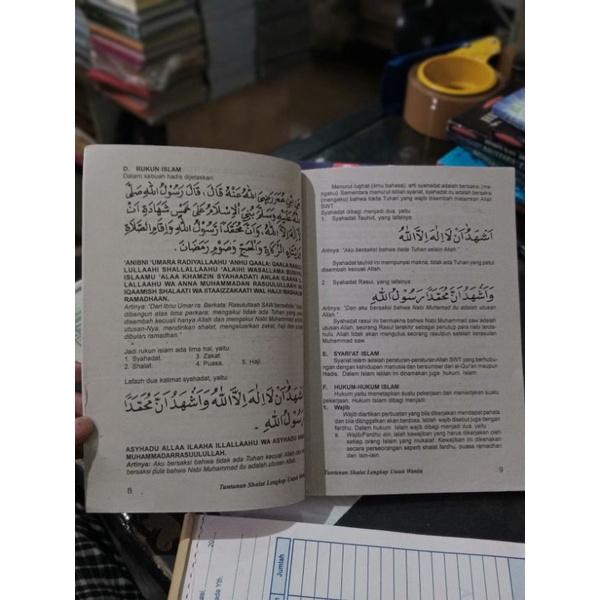 D. RUKUN ISLAM
Dalam sebuah hadis dijelaskan:
عَنِ ابْنِ عُمَرَ رَضِيَ اللهُ عَنْهُ قَالَ، قَالَ رَسُوْلُ اللهِ صَلَّى
اللهُ عَلَيْهِ وَسَلَّمَ بُنِيَ الْإِسْلَامُ عَلَى خَمْسٍ شَهَادَةِ اَنْ
لَا اِلٰهَ اِلَّا اللهُ، وَاَنَّ مُحَمَّدًا رَسُوْلُ اللهِ وَاِقَامِ الصَّلَاةِ
وَاِيْتَاءِ الزَّكَاةِ وَالْحَجِّ وَصَوْمِ رَمَضَانَ.
'ANIBNI 'UMARA RADIYALLAAHU 'ANHU QAALA: QAALA RASU
LULLAAHI SHALLALLAAHU 'ALAIHI WASALLAMA BUNIYAL
ISLAAMU 'ALAA KHAMZIN SYAHAADATI ANLAA ILAAHA IL
LALLAAHU WA ANNA MUHAMMADAN RASUULULLAAHI WA
IQAAMISH SHALAATI WA IITAAGZZAKAATI WAL HAJJI WASHAUMI
RAMADHAAN.
Artinya: "Dari Ibnu Umar ra. Berkata: Rasulullaah SAW bersabda:
dibangun atas lima perkara: mengakui tidak ada Tuhan yang
disembah kecuali hanya Allah dan mengakui Nabi Muhammad
utusan-Nya, mendirikan shalat, mengeluarkan zakat, haji dan puasa
dibulan ramadhan."
Jadi rukun islam ada lima hal, yaitu:
1. Syahadat. 3. Zakat.
2. Shalat. 4. Puasa. 5. Haji.
Lafazh dua kalimat syahadat, yaitu:
اَشْهَدُ اَنْ لَا اِلٰهَ اِلَّا اللهُ وَاَشْهَدُ اَنَّ مُحَمَّدًا
رَسُوْلُ اللهِ.
ASYHADU ALLAA ILAAHA ILLALLAAHU WA ASYHADU ANNA
MUHAMMADARRASUULULLAH.
Artinya: Aku bersaksi bahwa tidak ada Tuhan kecuali Allah dan
bersaksi pula bahwa Nabi Muhammad du adalah utusan Allah.
8 Tuntunan Shalat Lengkap Untuk
Menurut lughat (ilmu bahasa), arti syahadat adalah bersaksi (me-
ngaku). Sementara menurut istilah syariat, syahadat adalah bersaksi
(mengaku) bahwa tiada Tuhan yang wajib disembah melainkan Allah
SWT.
Syahadat dibagi menjadi dua, yaitu:
1. Syahadat Tauhid, yang lafalnya:
اَشْهَدُ اَنْ لَا اِلٰهَ اِلَّا اللهُ
Artinya: "Aku bersaksi bahwa tiada Tuhan selain Allah."
Syahadat tauhid ini mempunyai makna; tidak ada Tuhan yang patut
disembah kecuali Allah.
2 Syahadat Rasul, yang lafalnya:
وَاَشْهَدُ اَنَّ مُحَمَّدًا رَسُوْلُ اللهِ
Artinya: "Dan aku bersaksi bahwa Nabi Muhammad du adalah utusan
Allah."
Syahadat rasul ini bermakna bahwa Nabi Muhammad saw adalah
utusan Allah, seorang Rasul terakhir sebagai penutup para nabi terda-
hulu. Allah tidak akan mengutus seorang rasul setelah kerasulan
Muhammad saw.
E. SYARI'AT ISLAM
Syariat Islam adalah peraturan-peraturan Allah SWT yang berhubu-
ngan dengan kehidupan manusia dan bersumber dari al-Qur'an maupun
Hadis. Dalam Islam istilah ini dinamakan juga hukum Islam.
F. HUKUM-HUKUM ISLAM
Hukum yaitu menetapkan suatu pekerjaan dan meniadakan suatu
pekerjaan. Hukum Islam dibagi menjadi:
1. Wajib
Wajib diartikan perbuatan yang bila dikerjakan mendapat pahala
dan bila ditinggalkan akan berdosa. Istilah wajib disebut juga dengan
fardhu. Dalam hukum Islam wajib dibagi menjadi dua, yaitu:
a. Wajib/Fardhu ain, ialah kewajiban yang harus dikerjakan oleh
setiap orang Islam yang mukalaf. Kewajiban ini dikenakan
secara perseorangan seperti shalat fardhu, puasa ramadhan
dan lain-lain.
Tuntunan Shalat Lengkap Untuk Wanita 9
Jumlah
20